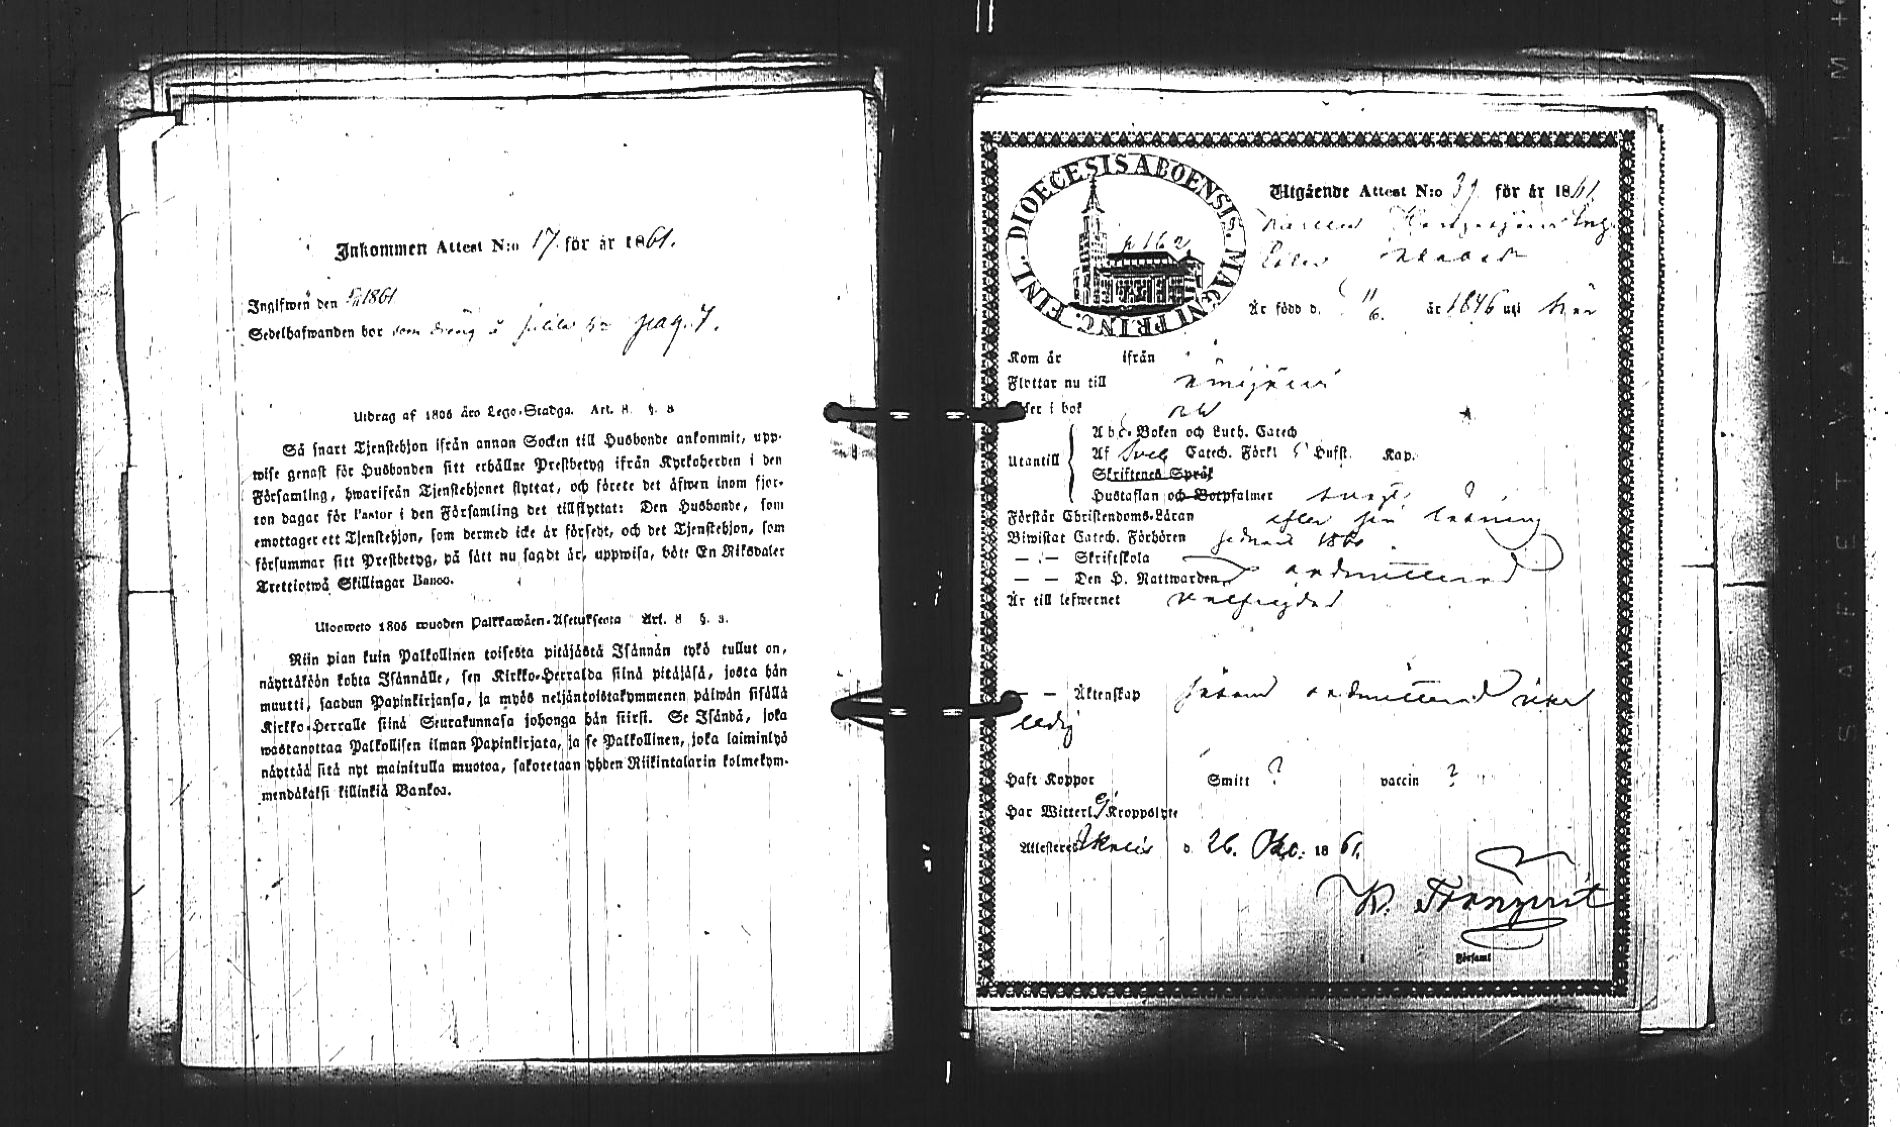 Inkommen Attest N:o 17. för år 1861.
Ingifwen den 5/11 1861
Sedelhafwanden bor som dräng pag. 7.
Utdrag af 1805 års Lego-Stadga. Art. 8. §. 8
Så snart Tjenstehjon ifrån annan Socken till Husbonde ankommit, upp-
wise genast för Husbonden sitt erhållne Prestbetyg ifrån Kyrkoherden i den
Församling, hwarifrån Tjenstehjonet flyttat, och förete det äfwen inom fjor-
ton dagar för Pastor i den Församling det tillflyttat: Den Husbonde, som
emottager ett Tjenstehjon, som dermed icke är försedt, och det Tjenstehjon, som
försummar sitt Prestbetyg, på sätt nu sagdt är, uppwisa, böte En Riksdaler
Trettiotwå Skillingar Banco.
Ulosweto 1805 wuoden Palkkawäen-Asetuksesta Art. 8 §. 8.
Niin pian kuin Palkollinen toisesta pitäjästä Isännän tykö tullut on,
näyttäköön kohta Isännälle, sen Kirkko-Herralda siinä pitäjäsä, josta hän
muutti, saadun Papinkirjansa, ja myös neljäntoistakymmenen päiwän sisällä
Kirkko-Herralle siinä Seurakunnasa johonga hän siirsi. Se Isändä, joka
wastanottaa Palkollisen ilman Papinkirjata, ja se Palkollinen, joka laiminlyö
näyttää sitä nyt mainitulla muotoa, sakotetaan yhden Riikintalarin kolmekym-
mendäkaksi killinkiä Bankoa.
DIOECESIS ABOENSIS. MAGNI PRINC. FINL.
p 162
Utgående Attest N:o 39 för år 1861.
Är född d. 11/6. år 1846 uti här
Kom år ifrån
Flyttar nu till
Läser i bok
Utantill
Abc-Boken och Luth. Catech
Af Sveb Catech. Förkl Husft. Kap.
Skriftenes Språk
Hustaflan och Botpsalmer svagt
Förstår Christendoms-Läran efter sin läsning
Biwistat Catech. Förhören sednast 1860
— — Skriftskola
— — Den H. Nattwarden admitterad
Är till lefwernet välfrejdad
— — Äktenskap såsom admitterad
ledig
Haft Koppor Smitt ? vaccin ?
Har Witterl. ej Kroppslyte
Attesterar d. 26. Okt. 1861.
Församl